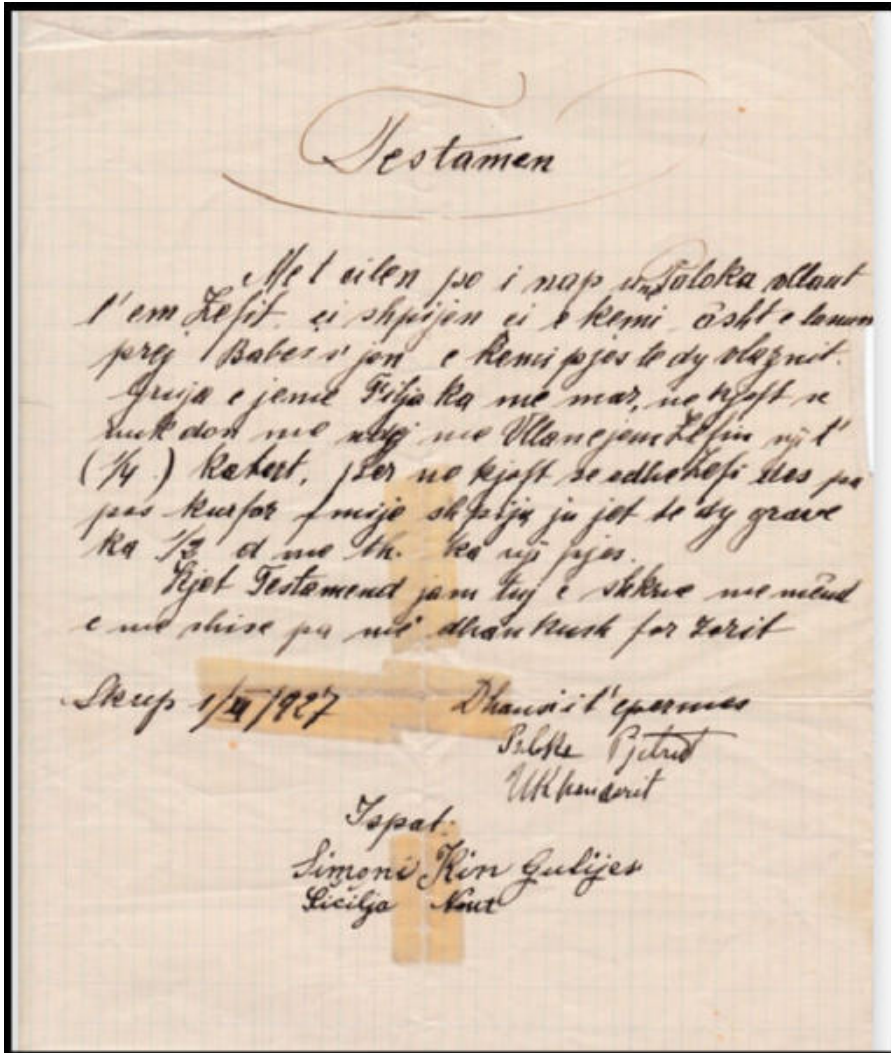 Testamen
Me t cilen po i nap un Paloka vllaut
t'em Zefit. ci shpijen ci e kemi âsht e lanun
prej Babes s' jon e kemi pjes te dy vlaznit.
Gruja e jeme Filja ka me mar, ne kjoft se
nuk don me me Vllan ejem Zefin nji t'
(1/4) katert, per ne kjoft se edhe Zefi des pa
pas kurfar fmije shpija ju jet te dy grave
ka 1/2 d me th. ka nji pjes.
Kjet Testamend jam tuj e shkrue me mend
e me shise pa më dhan kush far zorit
Skup 1/ /927 Dhansi i t' epermes
Pjetrit
Ispat:
Simoni Kin Gulijes
Sicilja